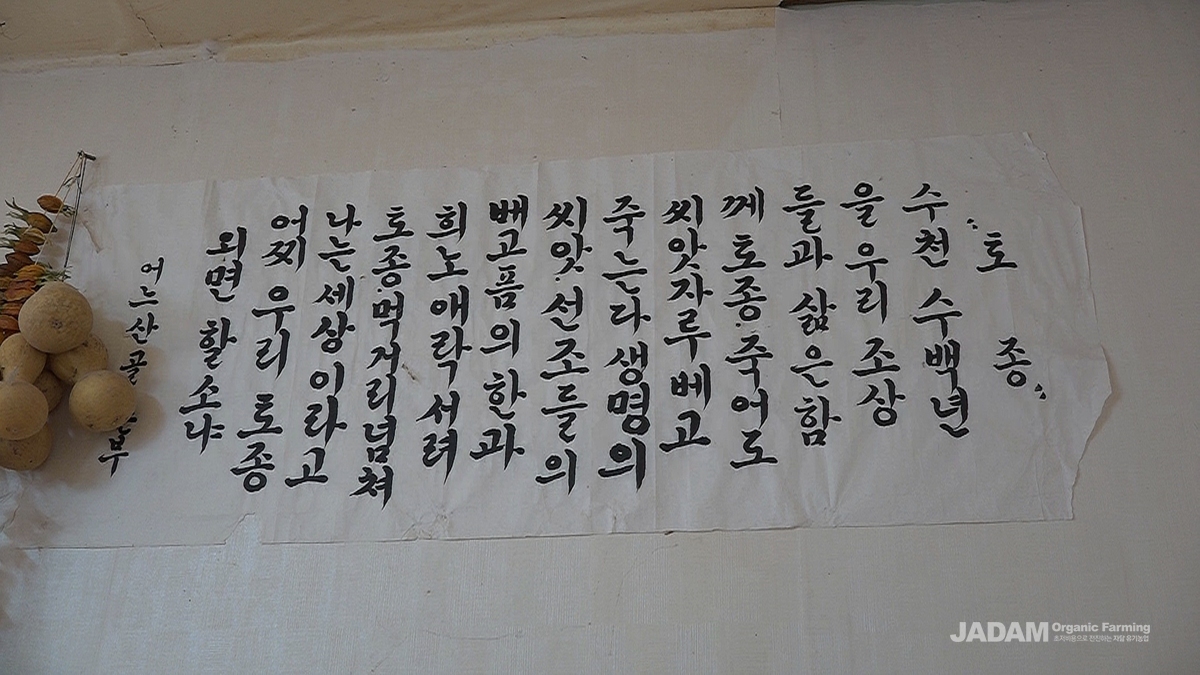 〃토 종〃
수천 수백년
을 우리 조상
들과 삶은 함
께 토종 죽어도
씨앗자루 베고
죽는다 생명의
씨앗 선조들의
배고픔의 한과
희노애락 서려
토종먹거리넘쳐
나는세상이라고
어찌 우리 토종
외면 할소냐
어느산골 부
JADAM Organic Farming
초저비용으로 안전하는 자담 유기농업